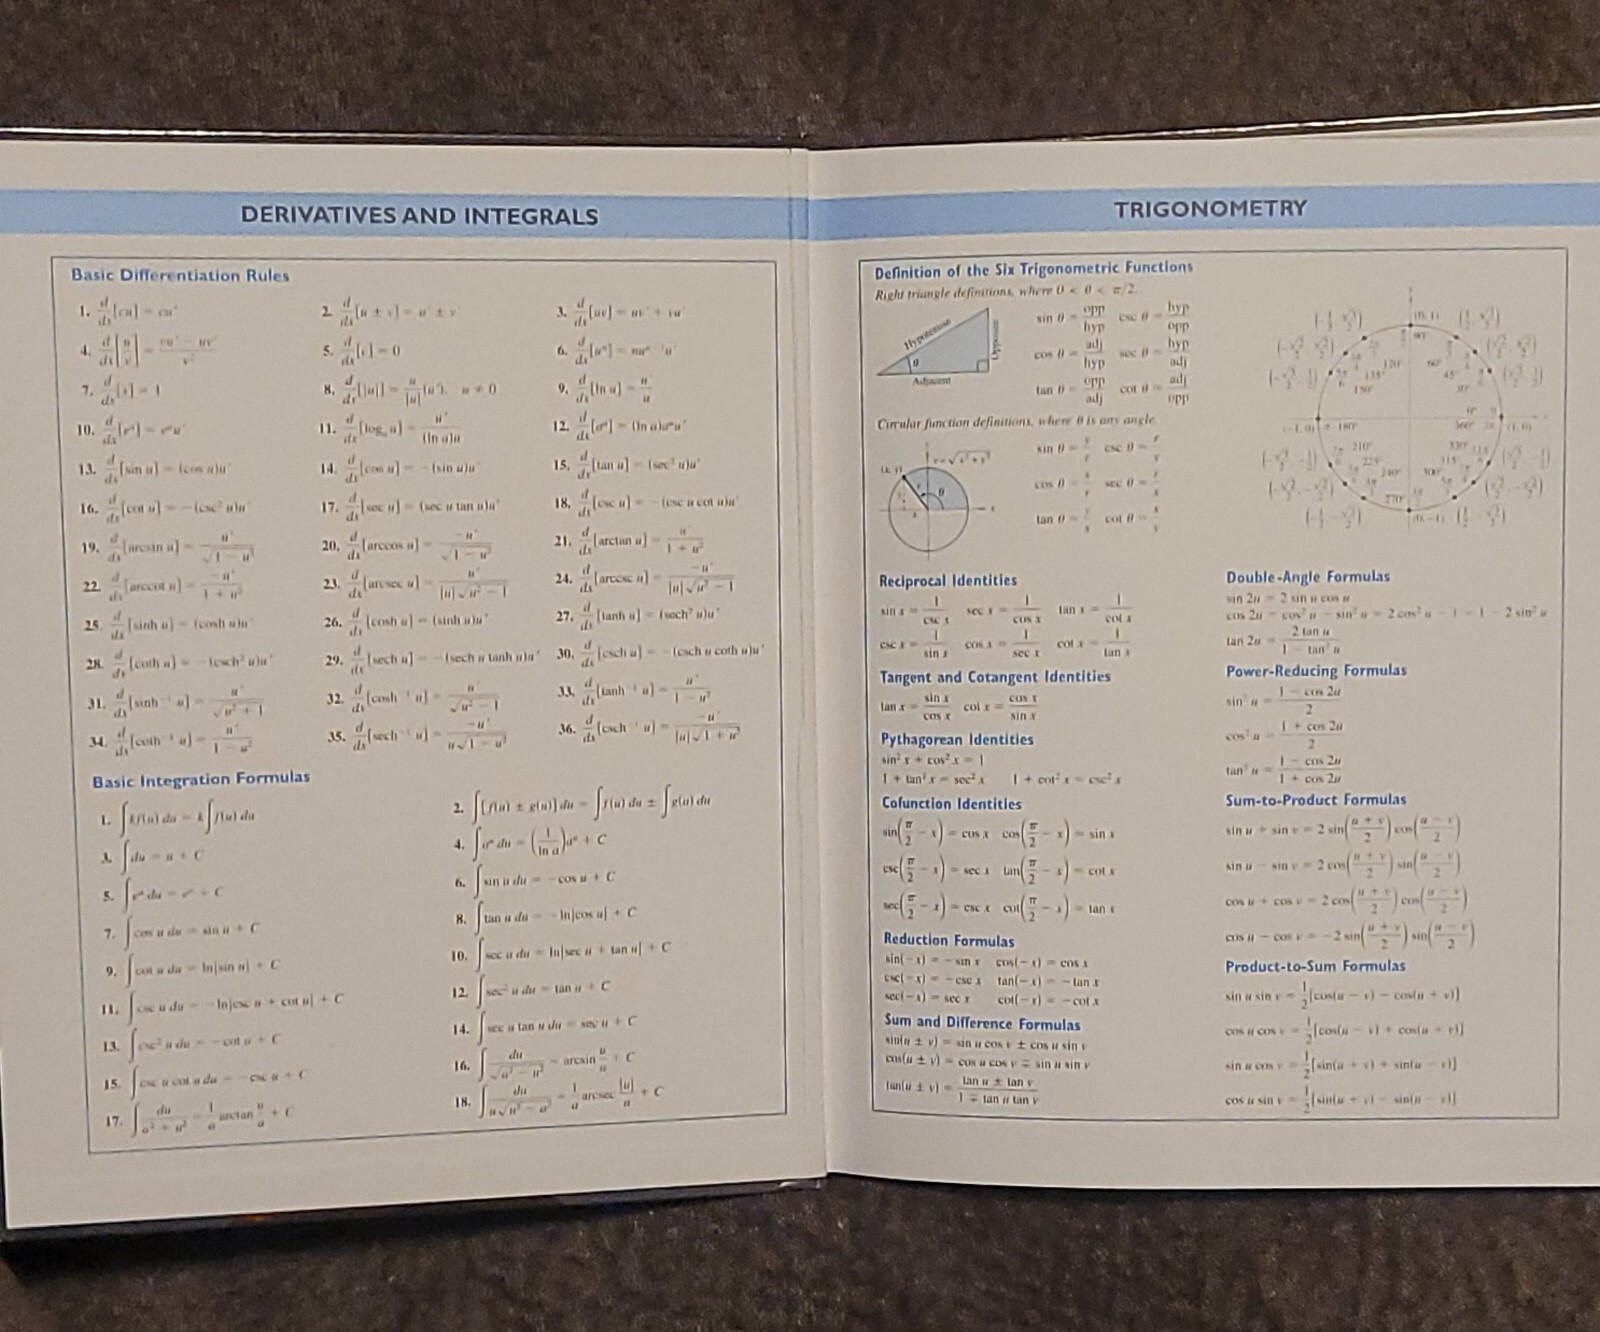 DERIVATIVES AND INTEGRALS
Basic Differentiation Rules
1. d/dx[cu] = cu′
2. d/dx[u ± v] = u′ ± v′
3. d/dx[uv] = uv′ + vu′
4. d/dx[u/v] = (vu′ − uv′)/v²
5. d/dx[c] = 0
6. d/dx[uⁿ] = nuⁿ⁻¹u′
7. d/dx[x] = 1
8. d/dx[|u|] = u/|u|(u′), u ≠ 0
9. d/dx[ln u] = u′/u
10. d/dx[eᵘ] = eᵘu′
11. d/dx[logₐ u] = u′/(ln a)u
12. d/dx[aᵘ] = (ln a)aᵘu′
13. d/dx[sin u] = (cos u)u′
14. d/dx[cos u] = −(sin u)u′
15. d/dx[tan u] = (sec² u)u′
16. d/dx[cot u] = −(csc² u)u′
17. d/dx[sec u] = (sec u tan u)u′
18. d/dx[csc u] = −(csc u cot u)u′
19. d/dx[arcsin u] = u′/√(1 − u²)
20. d/dx[arccos u] = −u′/√(1 − u²)
21. d/dx[arctan u] = u′/(1 + u²)
22. d/dx[arccot u] = −u′/(1 + u²)
23. d/dx[arcsec u] = u′/(|u|√(u² − 1))
24. d/dx[arccsc u] = −u′/(|u|√(u² − 1))
25. d/dx[sinh u] = (cosh u)u′
26. d/dx[cosh u] = (sinh u)u′
27. d/dx[tanh u] = (sech² u)u′
28. d/dx[coth u] = −(csch² u)u′
29. d/dx[sech u] = −(sech u tanh u)u′
30. d/dx[csch u] = −(csch u coth u)u′
31. d/dx[sinh⁻¹ u] = u′/√(u² + 1)
32. d/dx[cosh⁻¹ u] = u′/√(u² − 1)
33. d/dx[tanh⁻¹ u] = u′/(1 − u²)
34. d/dx[coth⁻¹ u] = u′/(1 − u²)
35. d/dx[sech⁻¹ u] = −u′/(u√(1 − u²))
36. d/dx[csch⁻¹ u] = −u′/(|u|√(1 + u²))
Basic Integration Formulas
1. ∫kf(u) du = k∫f(u) du
2. ∫[f(u) ± g(u)] du = ∫f(u) du ± ∫g(u) du
3. ∫du = u + C
4. ∫aᵘ du = (1/ln a)aᵘ + C
5. ∫eᵘ du = eᵘ + C
6. ∫sin u du = −cos u + C
7. ∫cos u du = sin u + C
8. ∫tan u du = −ln|cos u| + C
9. ∫cot u du = ln|sin u| + C
10. ∫sec u du = ln|sec u + tan u| + C
11. ∫csc u du = −ln|csc u + cot u| + C
12. ∫sec² u du = tan u + C
13. ∫csc² u du = −cot u + C
14. ∫sec u tan u du = sec u + C
15. ∫csc u cot u du = −csc u + C
16. ∫du/√(a² − u²) = arcsin u/a + C
17. ∫du/(a² + u²) = 1/a arctan u/a + C
18. ∫du/(u√(u² − a²)) = 1/a arcsec |u|/a + C
TRIGONOMETRY
Definition of the Six Trigonometric Functions
Right triangle definitions, where 0 < θ < π/2.
Hypotenuse
Opposite
θ
Adjacent
sin θ = opp/hyp csc θ = hyp/opp
cos θ = adj/hyp sec θ = hyp/adj
tan θ = opp/adj cot θ = adj/opp
Circular function definitions, where θ is any angle.
r = √(x² + y²)
(x, y)
sin θ = y/r csc θ = r/y
cos θ = x/r sec θ = r/x
tan θ = y/x cot θ = x/y
(0, 1)
90°
120°
60°
135°
45°
150°
30°
0°
(−1, 0) π 180°
360° 2π (1, 0)
210°
330°
225°
315°
240°
300°
270°
(0, −1)
Reciprocal Identities
sin x = 1/csc x sec x = 1/cos x tan x = 1/cot x
csc x = 1/sin x cos x = 1/sec x cot x = 1/tan x
Tangent and Cotangent Identities
tan x = sin x/cos x cot x = cos x/sin x
Pythagorean Identities
sin² x + cos² x = 1
1 + tan² x = sec² x 1 + cot² x = csc² x
Cofunction Identities
sin(π/2 − x) = cos x cos(π/2 − x) = sin x
csc(π/2 − x) = sec x tan(π/2 − x) = cot x
sec(π/2 − x) = csc x cot(π/2 − x) = tan x
Reduction Formulas
sin(−x) = −sin x cos(−x) = cos x
csc(−x) = −csc x tan(−x) = −tan x
sec(−x) = sec x cot(−x) = −cot x
Sum and Difference Formulas
sin(u ± v) = sin u cos v ± cos u sin v
cos(u ± v) = cos u cos v ∓ sin u sin v
tan(u ± v) = (tan u ± tan v)/(1 ∓ tan u tan v)
Double-Angle Formulas
sin 2u = 2 sin u cos u
cos 2u = cos² u − sin² u = 2 cos² u − 1 = 1 − 2 sin² u
tan 2u = 2 tan u/(1 − tan² u)
Power-Reducing Formulas
sin² u = (1 − cos 2u)/2
cos² u = (1 + cos 2u)/2
tan² u = (1 − cos 2u)/(1 + cos 2u)
Sum-to-Product Formulas
sin u + sin v = 2 sin((u + v)/2) cos((u − v)/2)
sin u − sin v = 2 cos((u + v)/2) sin((u − v)/2)
cos u + cos v = 2 cos((u + v)/2) cos((u − v)/2)
cos u − cos v = −2 sin((u + v)/2) sin((u − v)/2)
Product-to-Sum Formulas
sin u sin v = 1/2[cos(u − v) − cos(u + v)]
cos u cos v = 1/2[cos(u − v) + cos(u + v)]
sin u cos v = 1/2[sin(u + v) + sin(u − v)]
cos u sin v = 1/2[sin(u + v) − sin(u − v)]